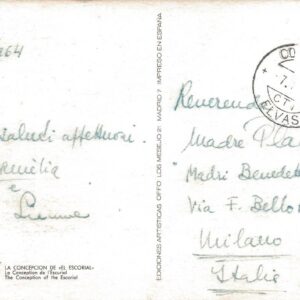 1964
saluti affettuosi
Emilia
e
LA CONCEPCION DE «EL ESCORIAL»
La Conception de l'Escurial
The Conception of the Escorial
EDICIONES ARTISTICAS OFFO LOS MESEJO 21 MADRID 7 IMPRESO EN ESPAÑA
CO
7.
CT
ELVAS
Reverenda
Madre Pla
Madri Benedet
Via F. Bello
Milano
Italia